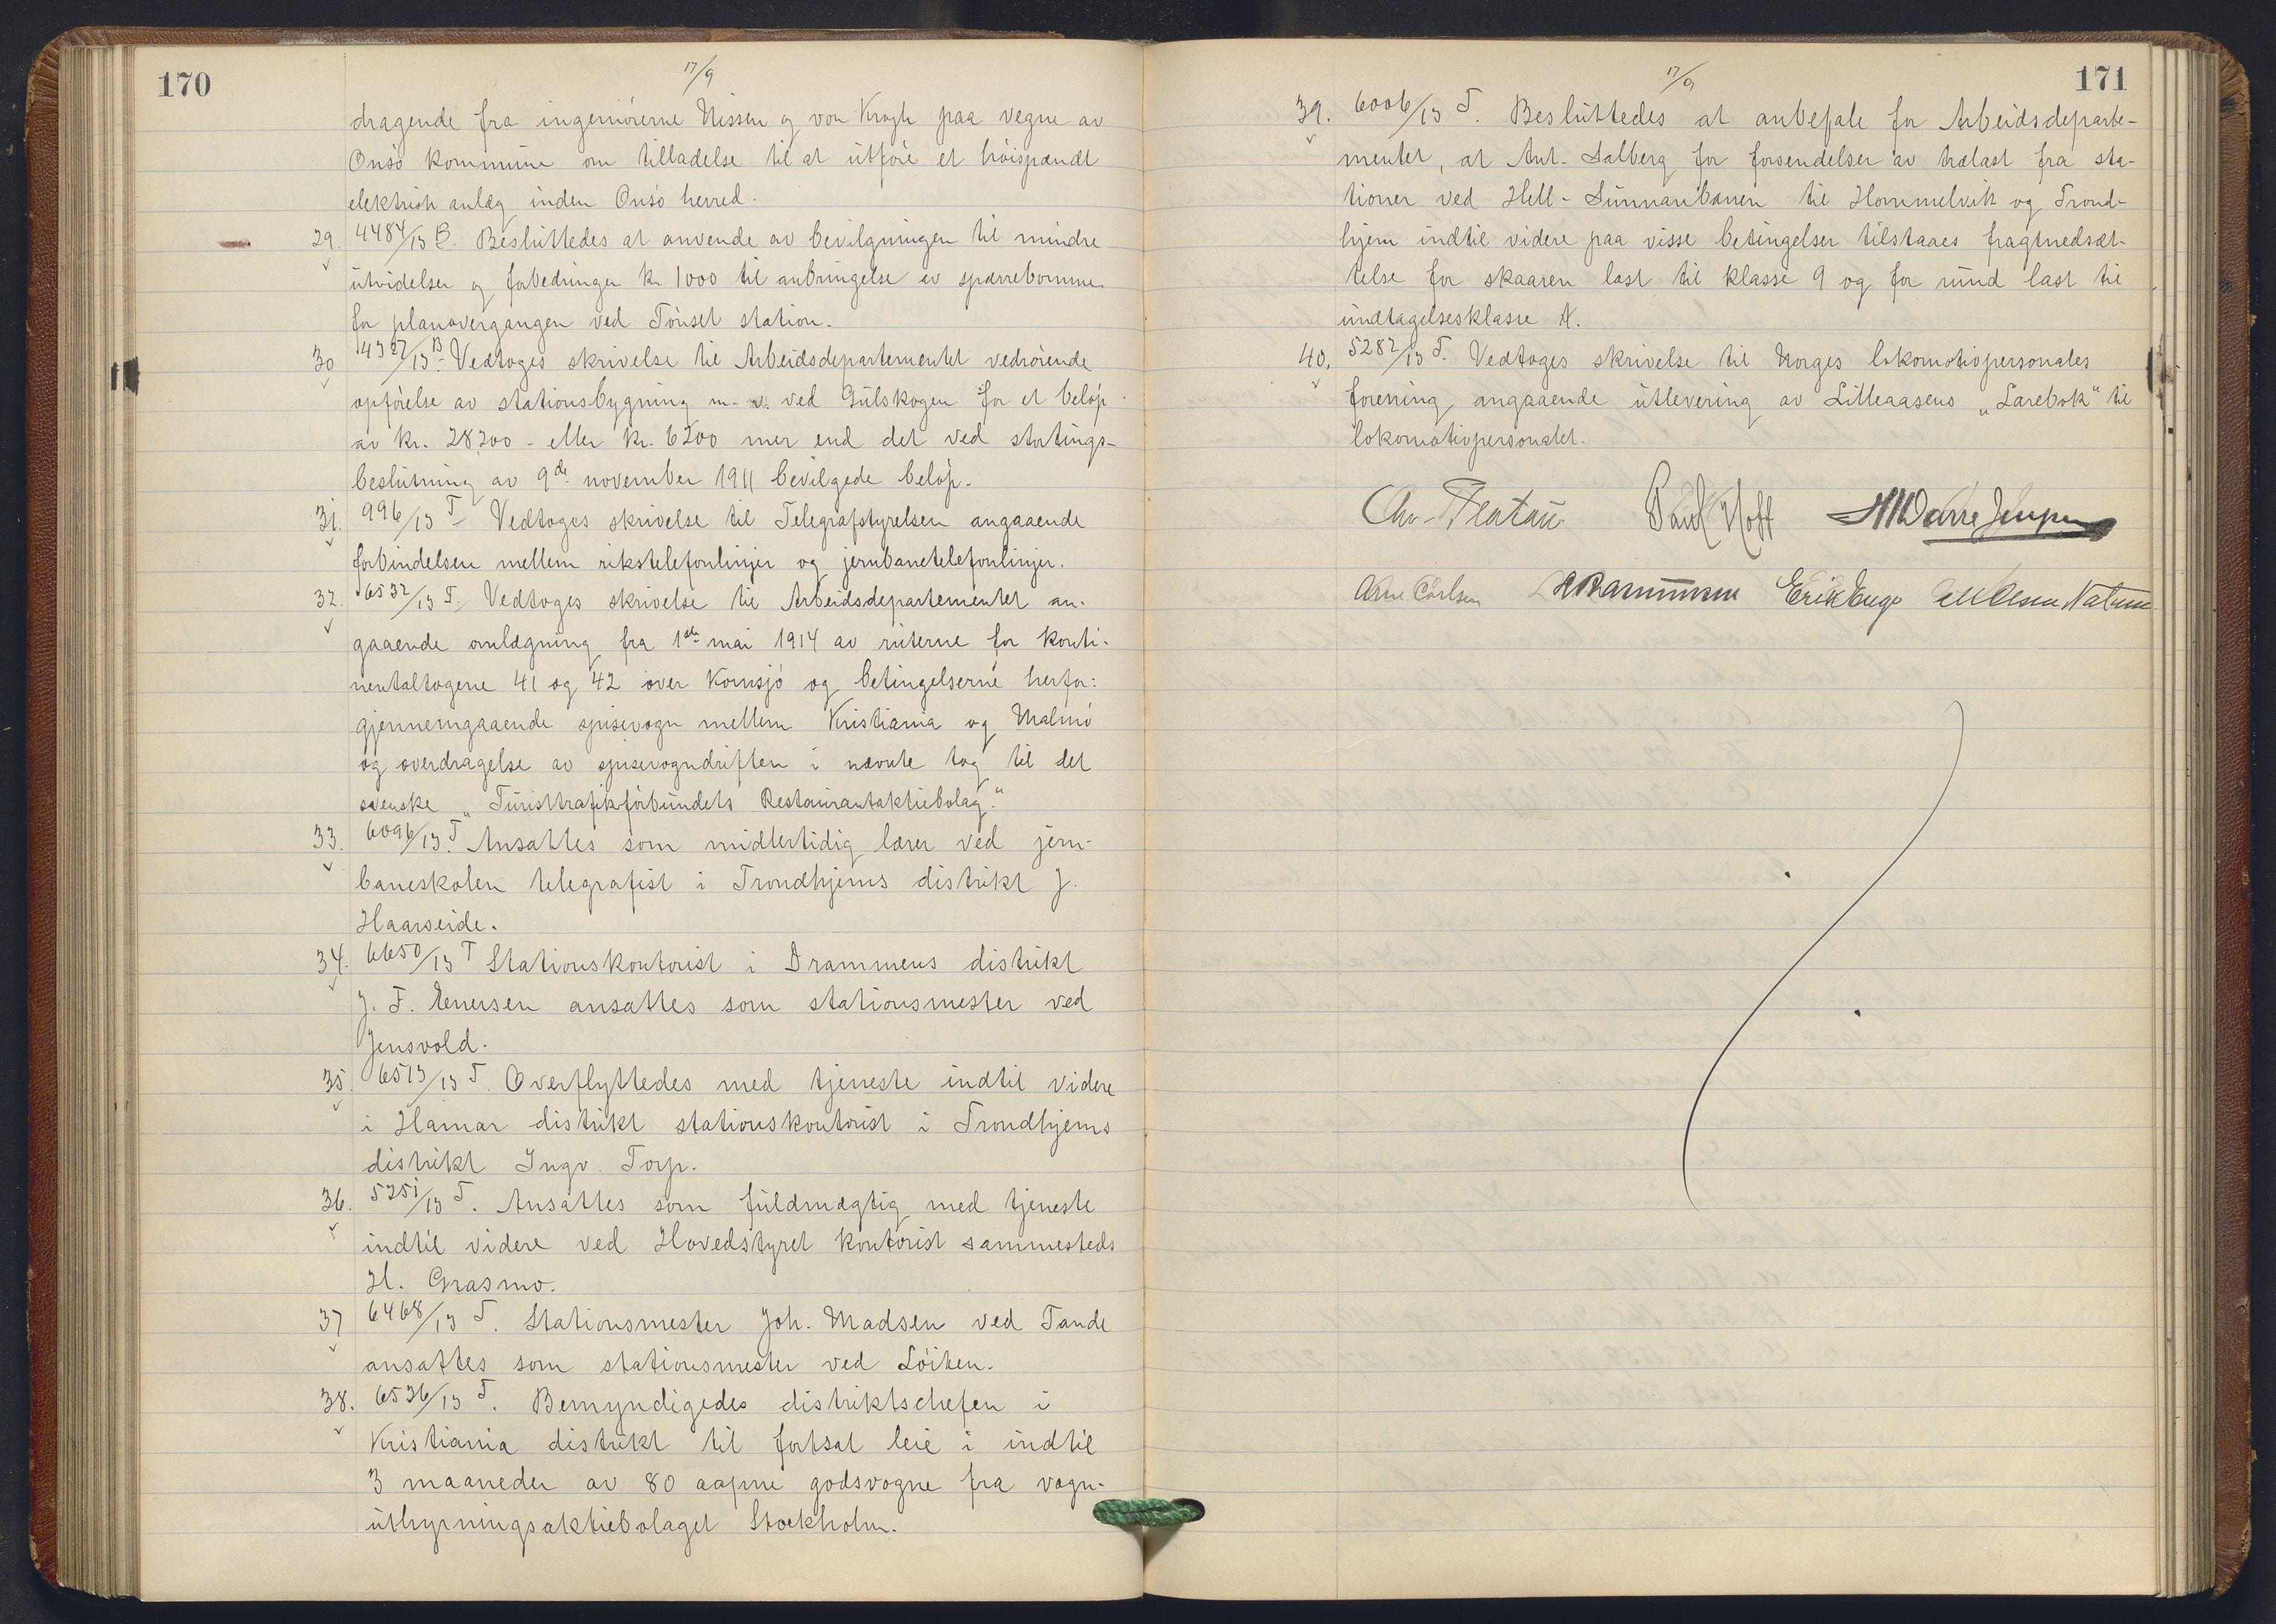 170
17/9
dragende fra ingeniørerne Nissen og von Krogh paa vegne av
Onsø kommune om tilladelse til at utføre et høispændt
elektrisk anlæg inden Onsø herred.
29. 4484/13 B. Besluttedes at anvende av bevilgningen til mindre
utvidelser og forbedringer kr 1000 til anbringelse av sperrebomme
for planovergangen ved Tönset station.
30 4327/13 B. Vedtoges skrivelse til Arbeidsdepartementet vedrörende
opförelse av stationsbygning m. v. ved Gulskogen for et belöp
av kr. 28,200 - eller kr. 6200 mer end det ved stortings-
beslutning av 9de november 1911 bevilgede belöp.
31. 996/13 T - Vedtoges skrivelse til Telegrafstyrelsen angaaende
forbindelsen mellem rikstelefonlinjer og jernbanetelefonlinjer.
32. 6532/13 T. Vedtoges skrivelse til Arbeidsdepartementet an-
gaaende omlægning fra 1ste mai 1914 av ruterne for konti-
nentaltogene 41 og 42 over Kornsjö og betingelserne herfor:
gjennemgaaende spisevogn mellem Kristiania og Malmö
og overdragelse av spisevogndriften i nævnte tog til det
svenske "Turisttrafikförbundets Restaurantaktiebolag."
33. 6096/13 T. Ansattes som midlertidig lærer ved jern-
baneskolen telegrafist i Trondhjems distrikt J.
Haarseide.
34. 6650/13 T Stationskontorist i Drammens distrikt
J. F. Enersen ansattes som stationsmester ved
Jensvold.
35. 6513/13 T. Overflyttedes med tjeneste indtil videre
i Hamar distrikt stationskontorist i Trondhjems
distrikt Ingv. Torp.
36. 5251/13 T. Ansattes som fuldmægtig med tjeneste
indtil videre ved Hovedstyret kontorist sammesteds
H. Grasmo.
37 6468/13 T. Stationsmester Joh. Madsen ved Tande
ansattes som stationsmester ved Löiten.
38. 6536/13 T. Bemyndigedes distriktschefen i
Kristiania distrikt til fortsat leie i indtil
3 maaneder av 80 aapne godsvogne fra vagn-
uthyrningsaktiebolaget Stockholm.
171
17/9
39. 6006/13 T. Besluttedes at anbefale for Arbeidsdeparte-
mentet, at Ant. Salberg for forsendelser av trælast fra sta-
tioner ved Hell-Sunnanbanen til Hommelvik og Trond-
hjem indtil videre paa visse betingelser tilstaaes fragtnedsæt-
telse for skaaren last til klasse 9 og for rund last til
undtagelsesklasse A.
40. 5282/13 T. Vedtoges skrivelse til Norges lokomotivpersonales
forening angaaende utlevering av Lilleaasens "Lærebok" til
lokomotivpersonalet.
Chr. Platou Paul Hoff Darre Jenssen
Arne Carlsen Erik Enge Olsen Nalum